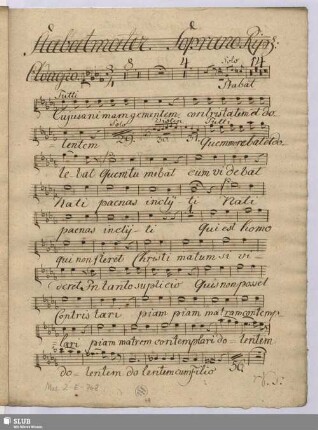 Stabat mater. Soprano. Rip:
Adagio. 3 8 4 Solo 14
Stabat
Tutti
Cujus animam gementem contristatem et do
Solo Violin Tutti
lentem 29. 30. 31. Quem merebat et do
le bat Quem tu mebat cum vi de bat
Nati paenas inclij ti Nati
paenas inclij ti Qui est homo
qui non fleret Christi matrum si vi
deret In tanto suplicio Quis non poset
Contris tari piam piam matrem contemp
lari piam matrem contemplari do lentem
do lentem do lentem cum filio 50.
V. S:
Mus. 2-E-748
SLUB